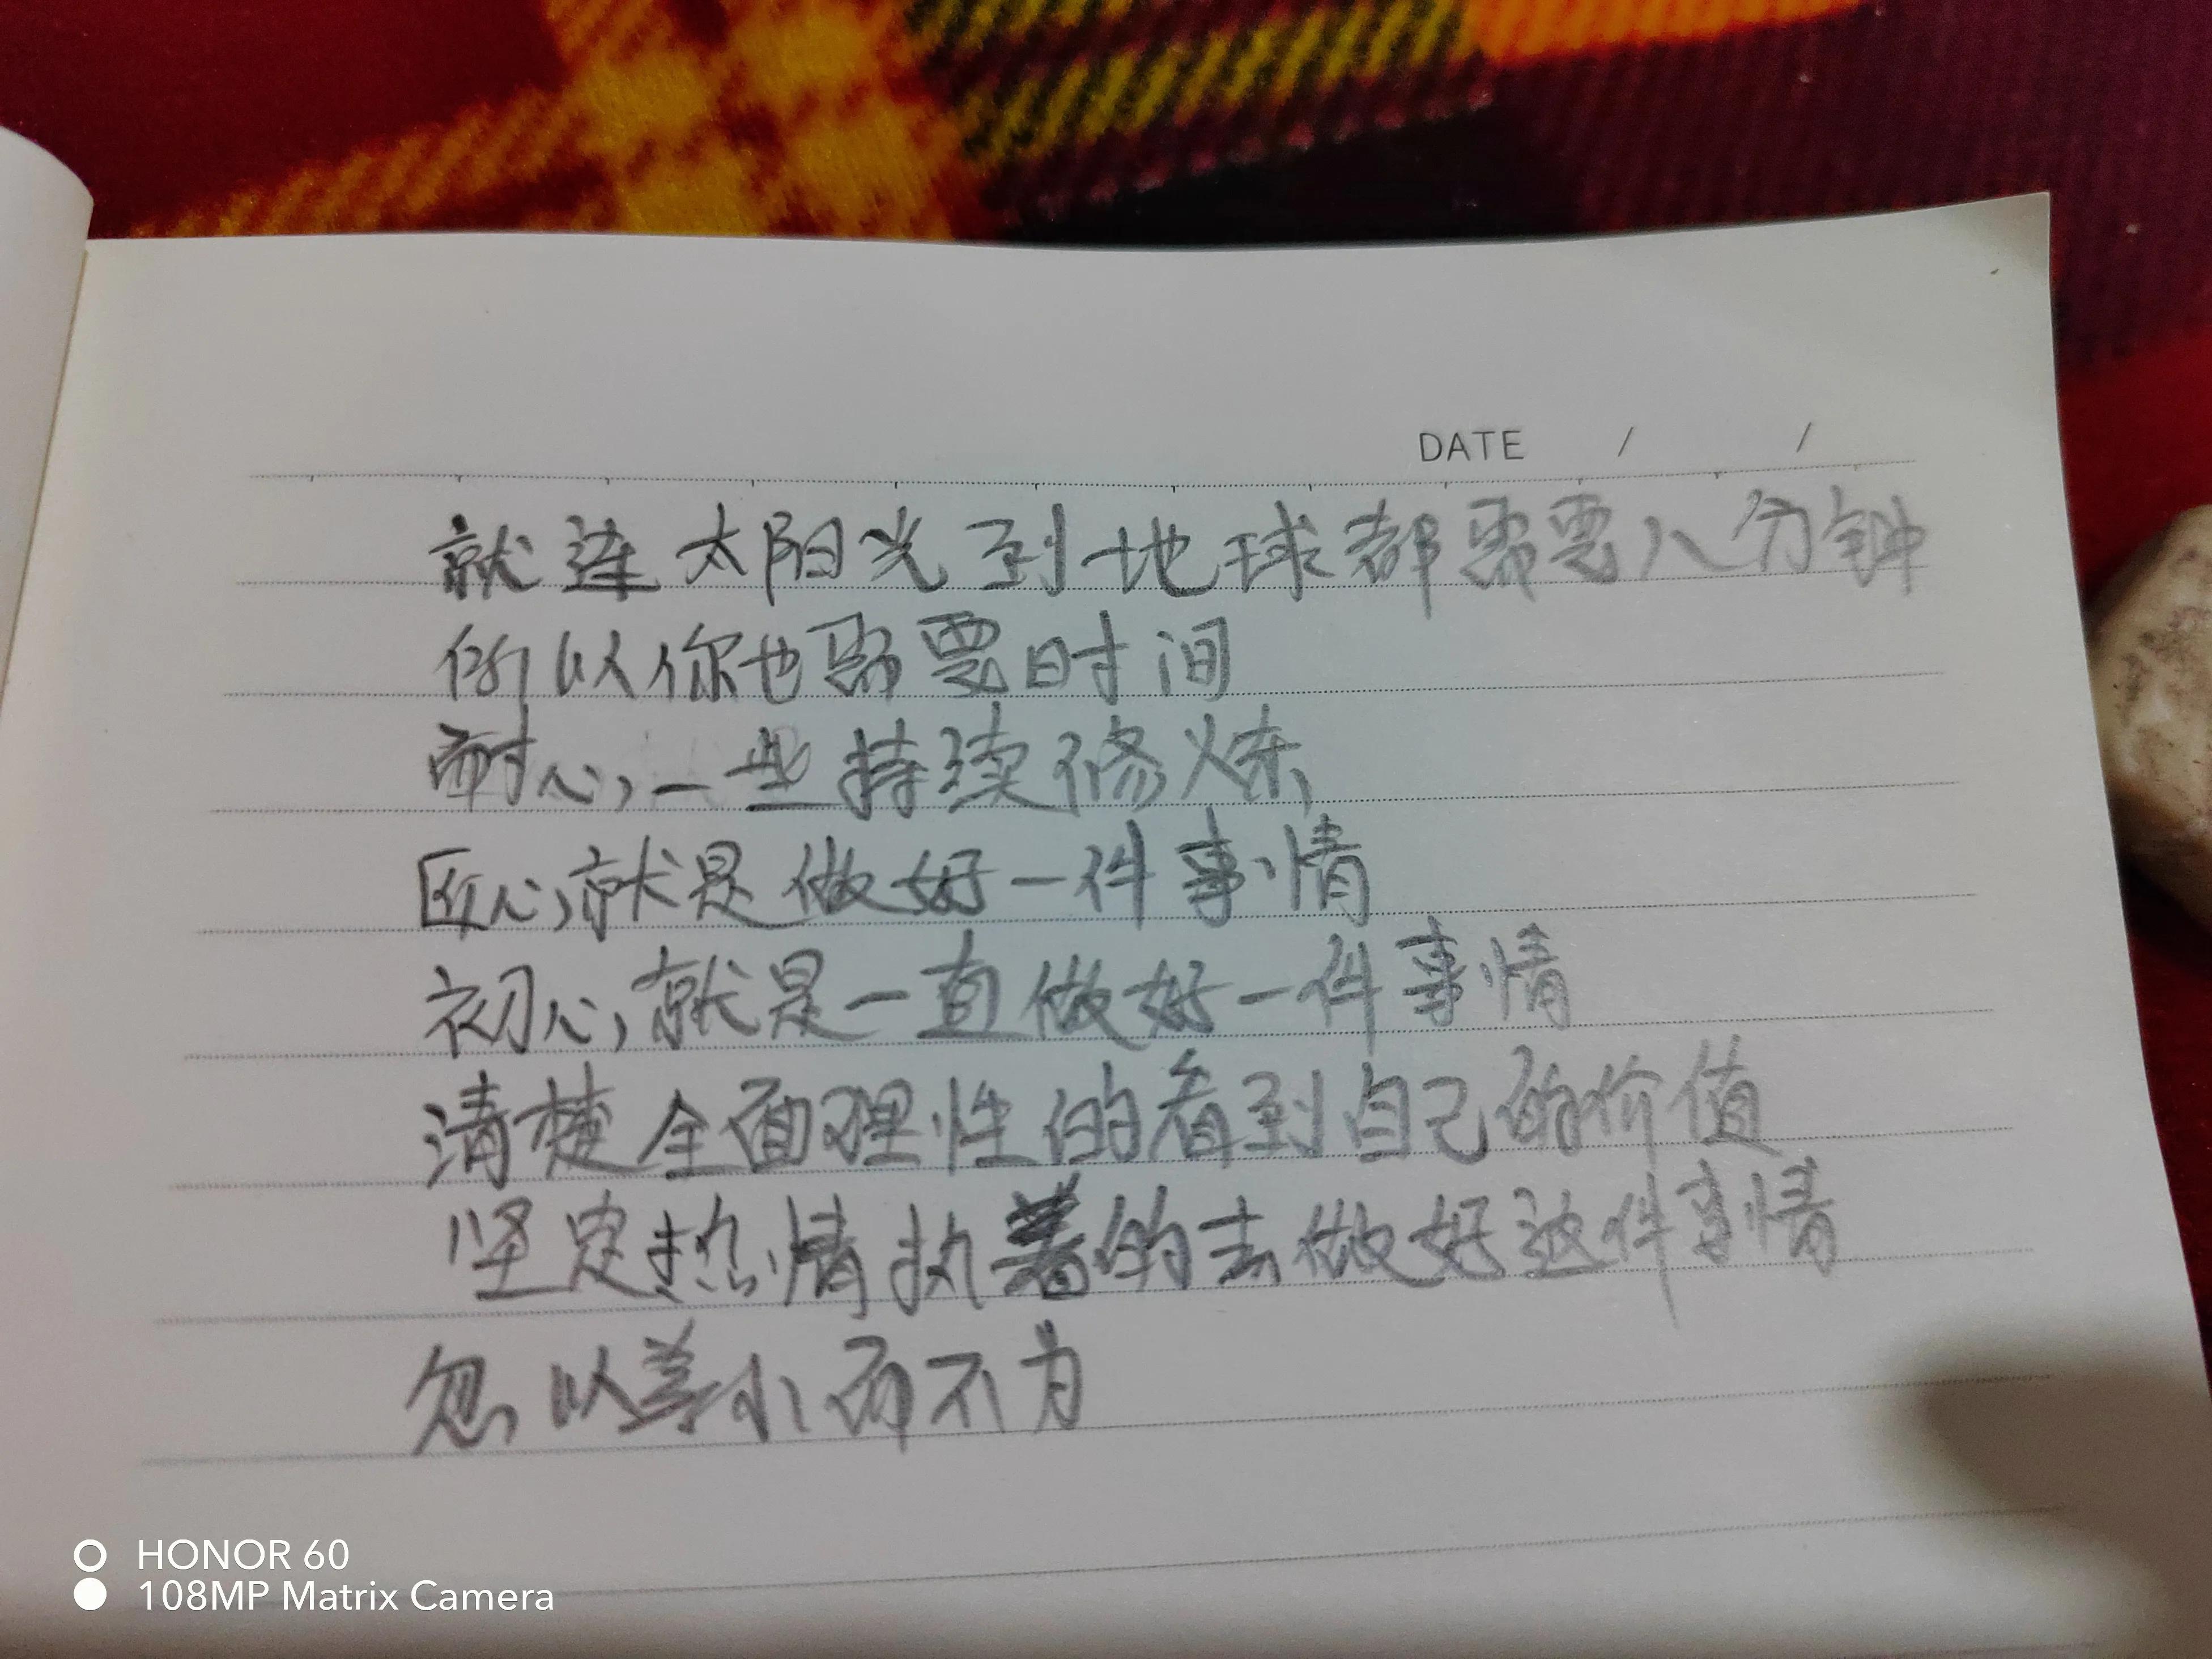 DATE / /
就连太阳光到地球都需要八分钟
所以你也需要时间
耐心,一些持续修炼
匠心,就是做好一件事情
初心,就是一直做好一件事情
清楚全面理性的看到自己的价值
坚定热情执着的去做好这件事情
忽以善小而不为
HONOR 60
108MP Matrix Camera